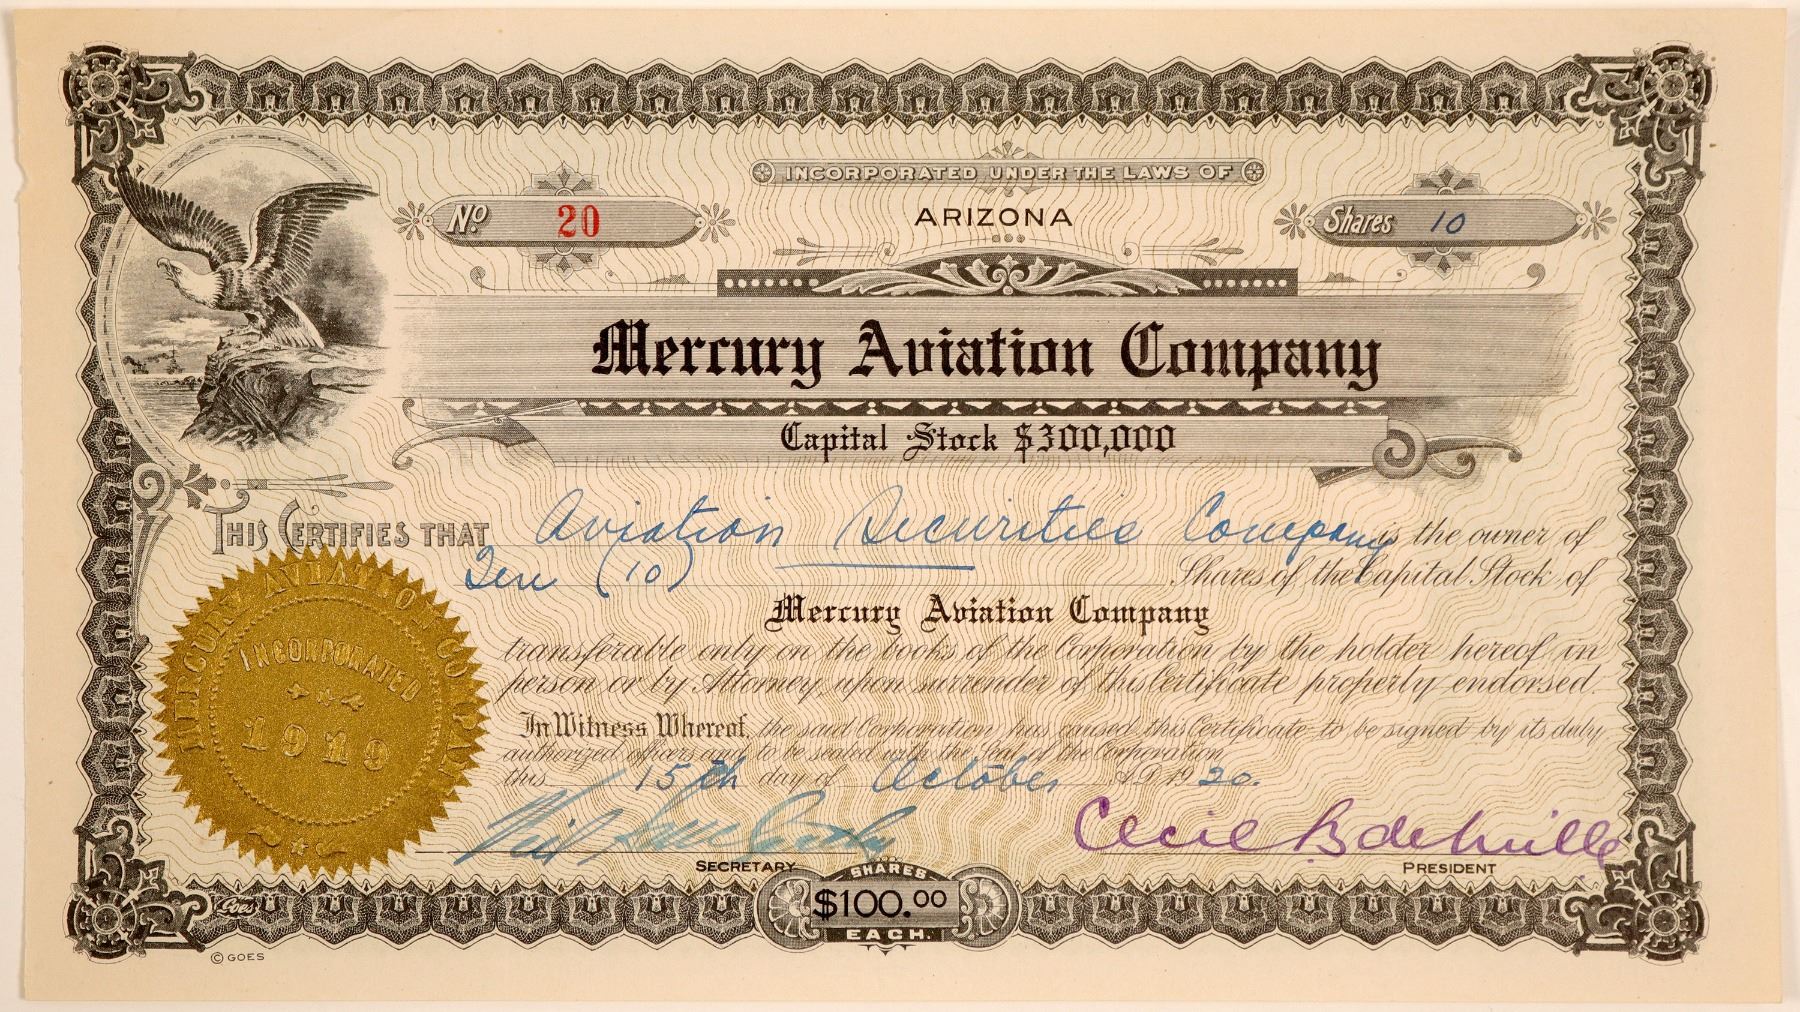 INCORPORATED UNDER THE LAWS OF
No 20
ARIZONA
Shares 10
Mercury Aviation Company
Capital Stock $300,000
THIS CERTIFIES THAT Aviation Securities Company is the owner of
Ten (10) Shares of the Capital Stock of
Mercury Aviation Company
transferable only on the books of the Corporation by the holder hereof in
person or by Attorney upon surrender of this Certificate properly endorsed.
In Witness Whereof, the said Corporation has caused this Certificate to be signed by its duly
authorized officers and to be sealed with the Seal of the Corporation
this 15th day of October A.D. 1920.
MERCURY AVIATION COMPANY
INCORPORATED
1919
Cecil B deMille
SECRETARY
PRESIDENT
SHARES
$100.00
EACH.
Goes
© GOES